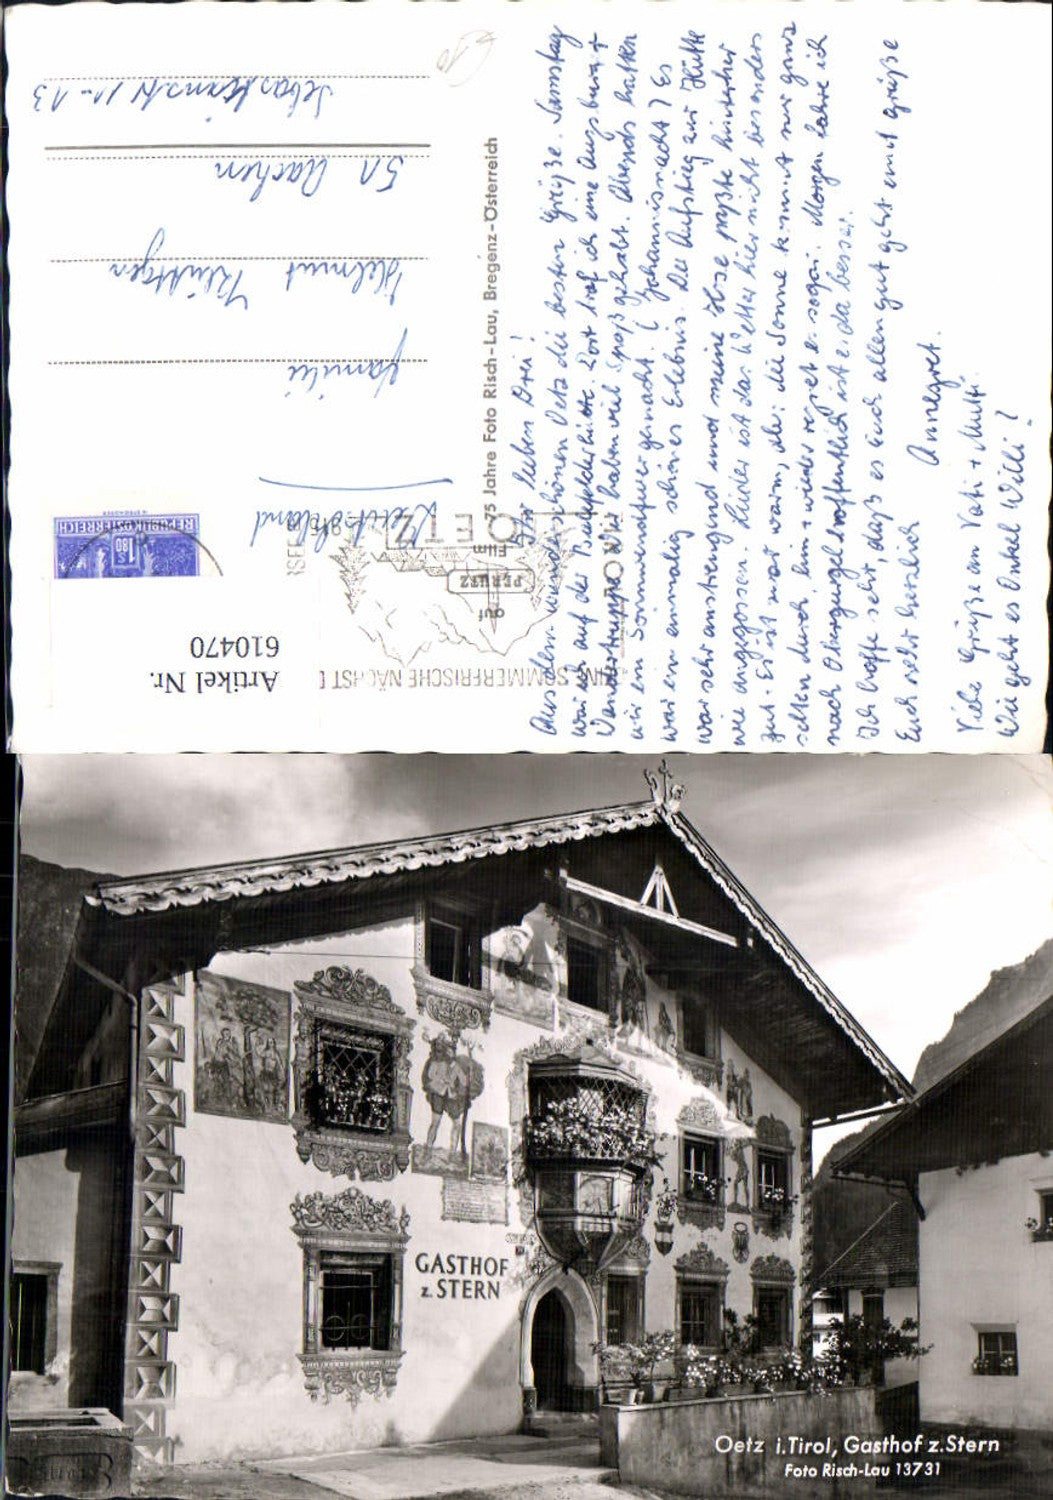 Ihr lieben Drei!
Aus dem wunderschönen Oetz die besten Grüße. Samstag
war ich auf der Bielefelderhütte. Dort traf ich eine Augsburger
Wandertruppe. Wir haben viel Spaß gehabt. Abends hatten
wir ein Sonnwendfeuer gemacht. (Johannisnacht) Es
war ein einmalig schönes Erlebnis. Der Aufstieg zur Hütte
war sehr anstrengend und meine Hose paßte hinterher
wie angegossen. Leider ist das Wetter hier nicht besonders
gut. Es ist zwar warm, aber die Sonne kommt nur ganz
selten durch, hin + wieder regnet es sogar. Morgen fahre ich
nach Obergurgel hoffentlich ist es da besser.
Ich hoffe sehr, daß es Euch allen gut geht und grüße
Euch sehr herzlich
Annegret.
Viele Grüße an Vati + Mutti.
Wie geht es Onkel Willi?
75 Jahre Foto Risch-Lau, Bregenz-Österreich
SOMMERFRISCHE NÄCHST
OETZ
auf
PERUTZ
Film
REPUBLIK ÖSTERREICH
S 1.80
Deutschland
Familie
Helmut
51 Aachen
Sebastianstr. 11-13
Artikel Nr.
610470
GASTHOF
z. STERN
Oetz i. Tirol, Gasthof z. Stern
Foto Risch-Lau 13731